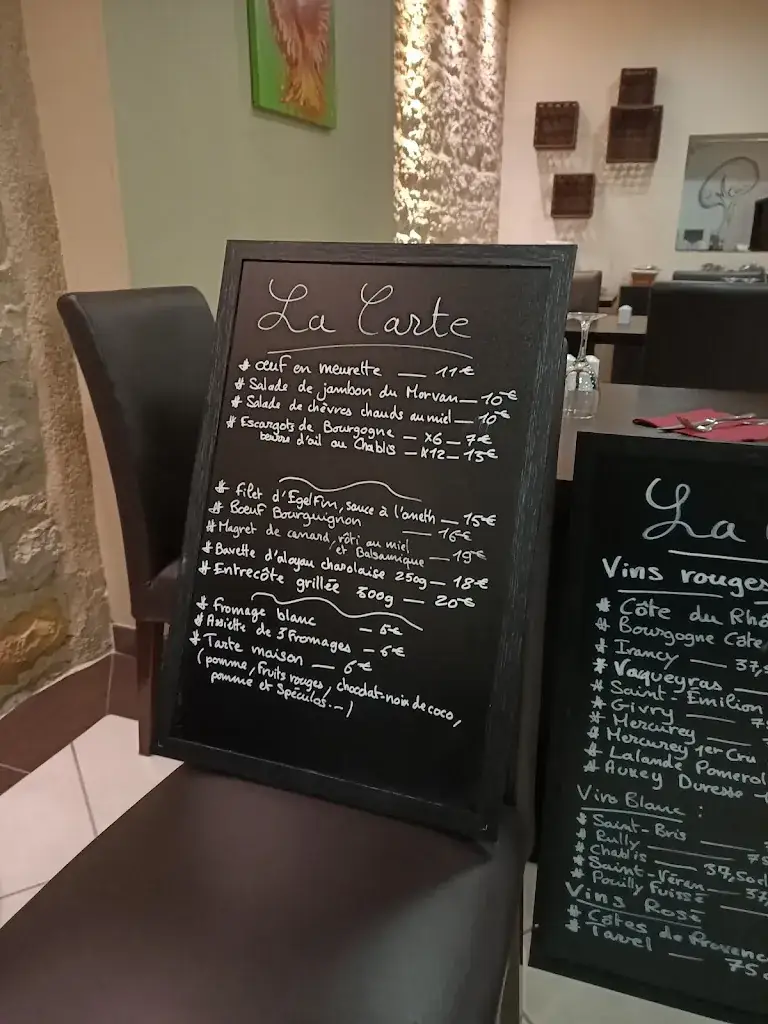 La Carte
# œuf en meurette — 11€
# Salade de jambon du Morvan — 10€
# Salade de chèvres chauds au miel — 10€
# Escargots de Bourgogne — x6 — 7€
beurre d'ail au Chablis — x12 — 13€
# filet d'Egelfin, sauce à l'aneth — 15€
# Bœuf Bourguignon — 16€
# Magret de canard, rôti au miel
et Balsamique — 19€
# Bavette d'aloyau charolaise 250g — 18€
# Entrecôte grillée 300g — 20€
# fromage blanc — 5€
# Assiette de 3 fromages — 6€
# Tarte maison — 6€
(pomme, fruits rouges, chocolat-noix de coco,
pomme et Spéculos...)
La
Vins rouges
# Côte du Rhô
# Bourgogne Côte
# Irancy — 37,5
# Vaqueyras —
# Saint-Émilion
# Givry — 75
# Mercurey —
# Mercurey 1er Cru
# Lalande Pomerol
# Auxey Duresse
Vins Blanc :
# Saint-Bris —
# Rully — 75
# Chablis — 37,50cl
# Saint-Véran — 37,
# Pouilly Fuissé
Vins Rosé
# Côtes de Provenc
# Tavel — 75c